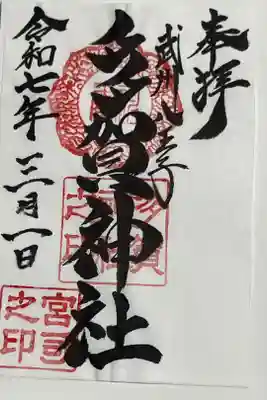 奉拝
武州八王子
多賀神社
令和七年三月一日
多賀
之印
宮司
之印